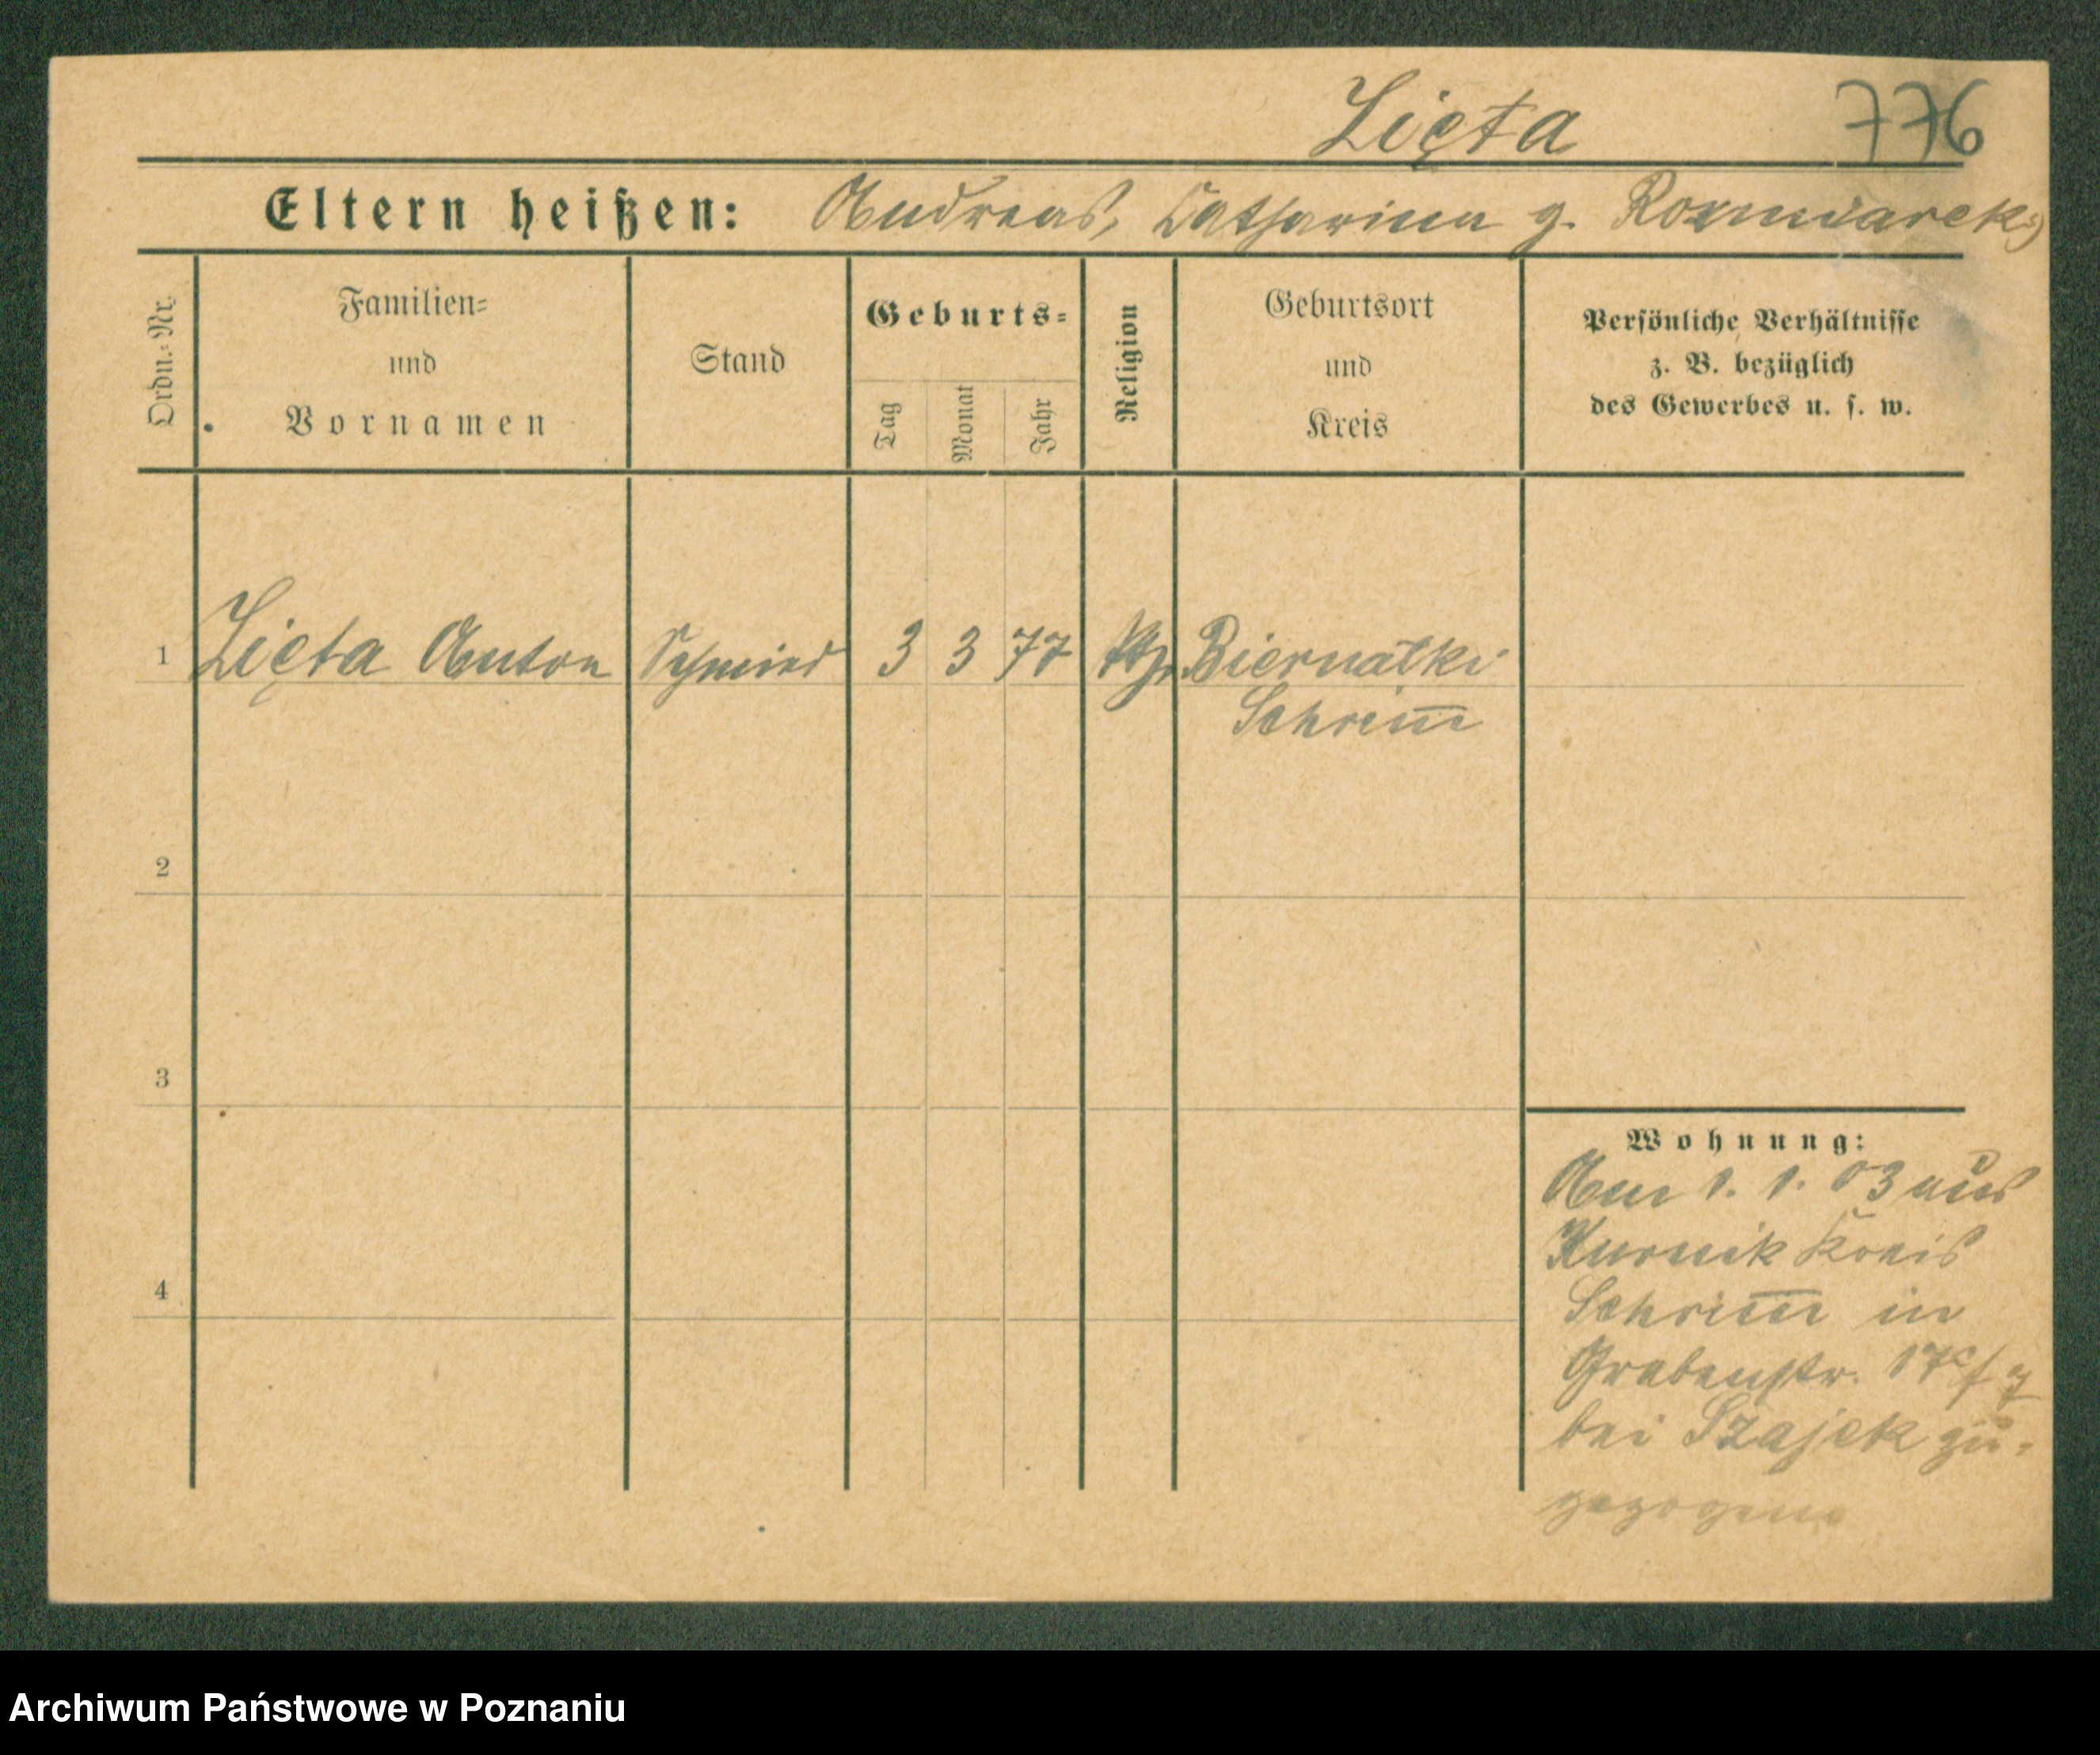 Zięta 776
Eltern heißen: Andreas, Catharina g. Rozmiarek
Ordn.-Nr.
Familien-
und
Vornamen
Stand
Geburts-
Tag
Monat
Jahr
Religion
Geburtsort
und
Kreis
Persönliche Verhältnisse
z. B. bezüglich
des Gewerbes u. s. w.
1 Zięta Anton Schmied 3 3 77 Biernatki
Schrim̅
2
3
4
Wohnung:
Am 1. 1. 03 aus
Kurnik Kreis
Schrim̅ in
Grabenstr.
bei Szajek zu-
gezogen.
Archiwum Państwowe w Poznaniu